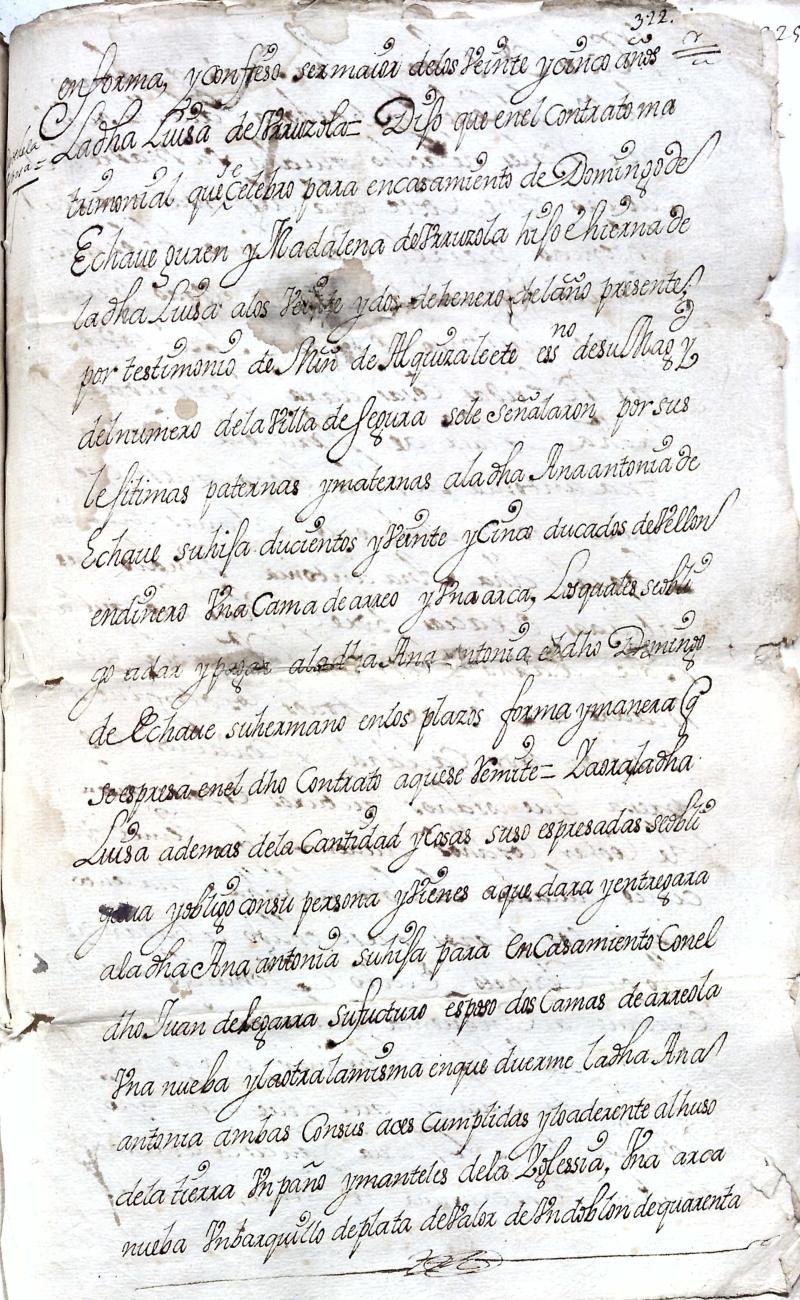 322.
en forma, y confieso ser maior de los Veinte y cinco años
La dha Luisa de Vrruzola = Dijo que en el Contrato ma
trimonial que celebro para en casamiento de Domingo de
Echaue guren y Madalena de Vrruzola hijo e hierna de
la dha Luisa a los Veinte y dos de henero del año presente
por testimonio de Min de Alquizalecete essno de su Magd y
del numero de la Villa de Segura se le señalaron por sus
lesitimas paternas y maternas a la dha Ana antonia de
Echaue su hija ducientos y Veinte y Cinco ducados de Vellon
en dinero Vna Cama de arreo y Vna arca, Los quales se obli
go a dar y pagar a la dha Ana antonia el dho Domingo
de Echaue su hermano en los plazos forma y manera q
se espresa en el dho Contrato a que se Remite = Y aora la dha
Luisa ademas de la Cantidad y Cosas suso espresadas se obli
gaua y obligo con su persona y Vienes a que dara y entregara
a la dha Ana antonia su hija para en Casamiento Con el
dho Juan de legarra su fucturo esposo dos Camas de arreo la
Vna nueba y la otra la misma en que duerme la dha Ana
antonia ambas Con sus aces Cumplidas y lo aderente al huso
de la tierra Vn paño y manteles de la Yglessia, Vna arca
nueba Vn barquillo de plata de Valor de Vn doblon de quarenta